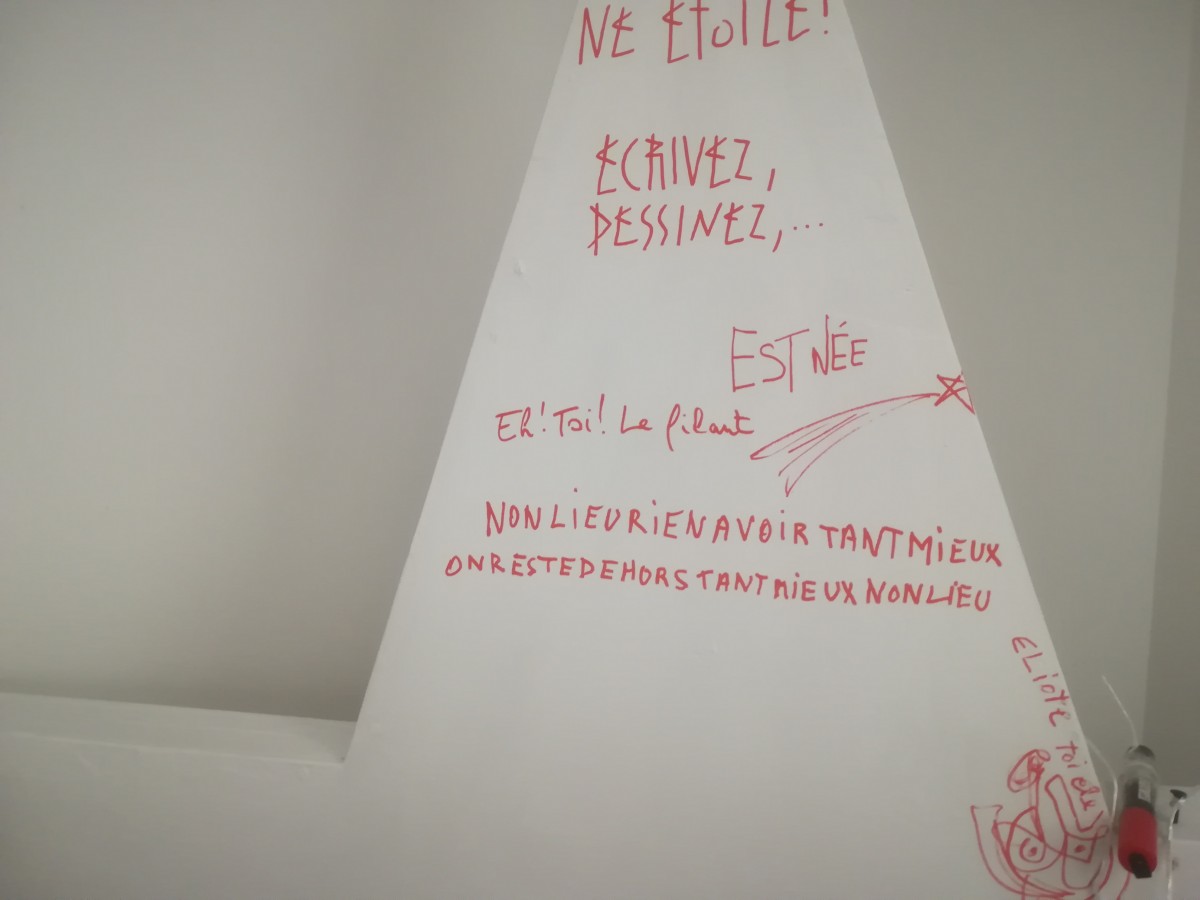 NE ETOILE!
ECRIVEZ,
DESSINEZ,...
EST NÉE
Eh! Toi! Le filant
NONLIEURIENAVOIRTANTMIEUX
ONRESTEDEHORSTANTMIEUXNONLIEU
ELiOTE toi de